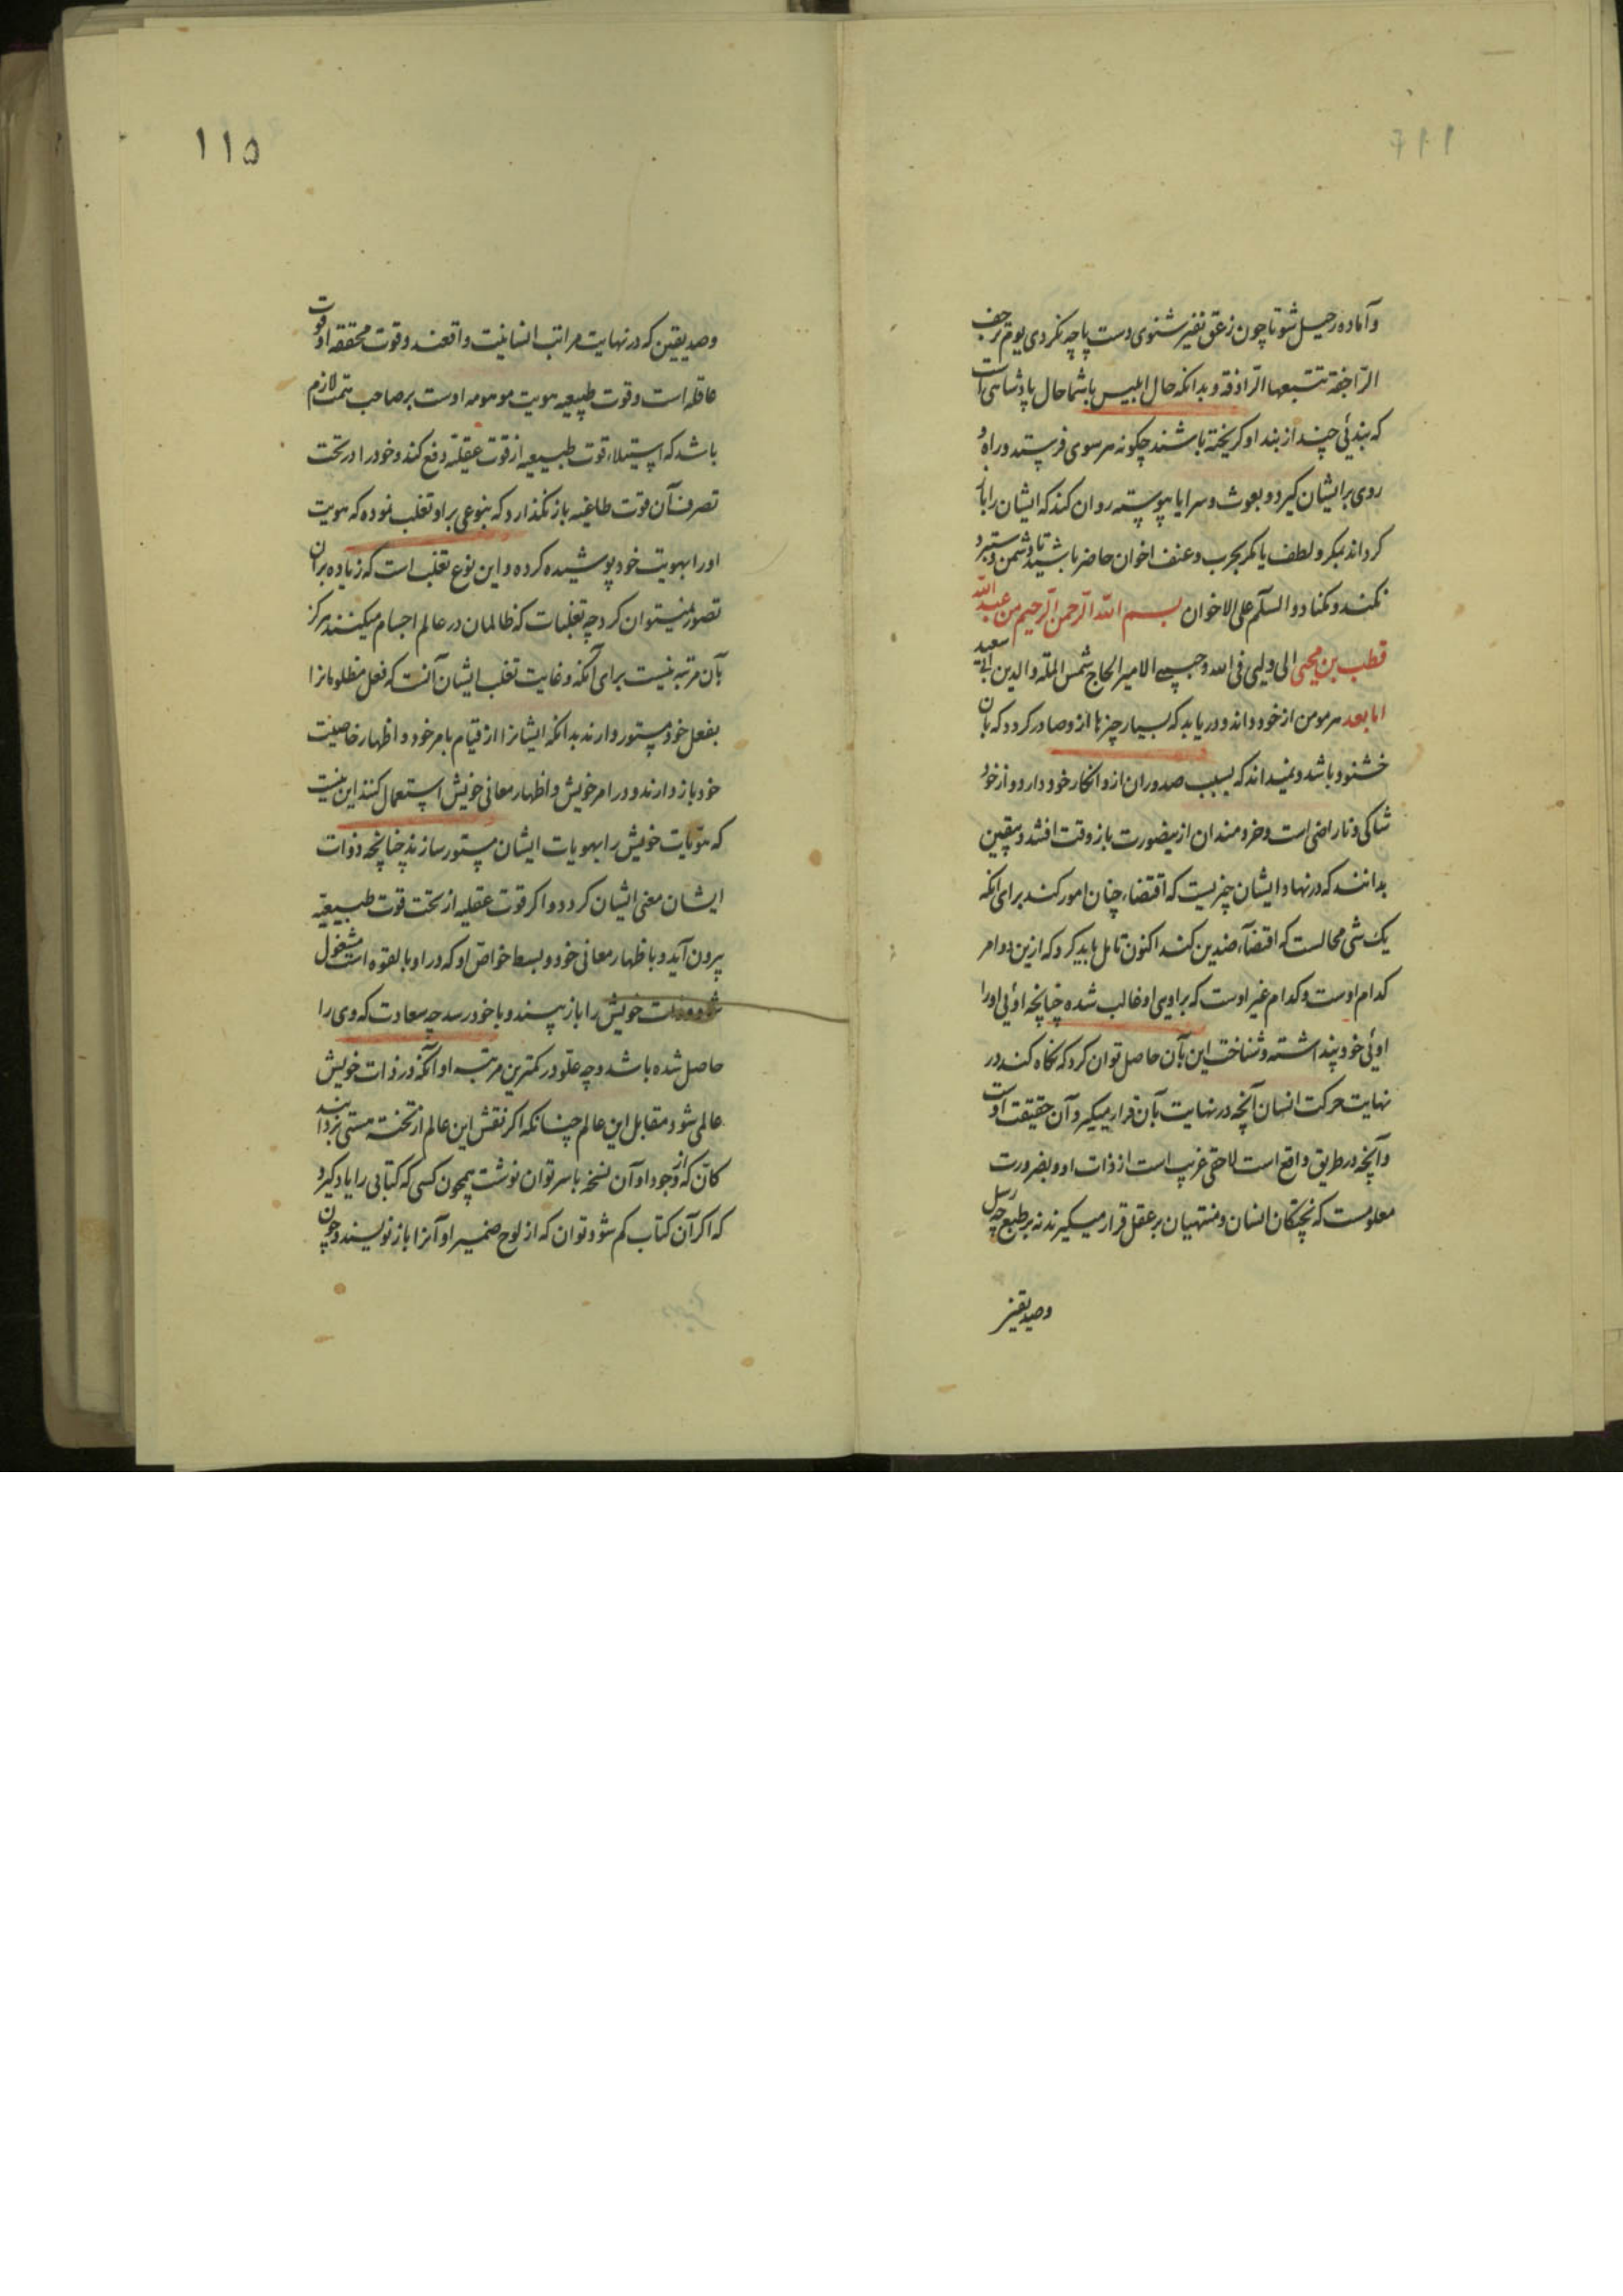 وآماده رحیل شو تا چون زعق نفیر شنوی دست پاچه نکردی یوم ترجف
الراجفة تتبعها الرادفة و بدانکه حال ابلیس باشما حال پادشاهی است
که بندئی چند از بند او کریخته باشند چکونه هر سوی فرستد و راه و
روی بر ایشان کیرد و بعوث و سرایا پیوسته روان کند که ایشان را باز
کرداند بمکر و لطف یا بحرب و عنف اخوان حاضر باشید تا دشمن دستبرد
نکند و نکناد و السلام علی الاخوان بسم الله الرحمن الرحیم من عبدالله
قطب بن محیی الی ولیی فی الله و حبیبی الامیر الحاج شمس الملة والدین ابی سعید
اما بعد هر مومن از خود داند و دریابد که بسیار چیزها از و صادر کردد که بآن
خشنود باشد و نمیداند که بسبب صدور آن از و انکار خود دارد و از خود
شاکی و ناراضی است و خردمندان ازین صورت باز وقت افتند و بیقین
بدانند که در نهاد ایشان چیزیست که اقتضاء چنان امور کند برای آنکه
یک شی محالست که اقتضاء ضدین کند اکنون تامل باید کرد که ازین دو امر
کدام اوست و کدام غیر اوست که بر اویی او غالب شده چنانچه اوئی او را
اوئی خود پنداشته و شناخت این بآن حاصل توان کرد که نکاه کند در
نهایت حرکت انسان آنچه در نهایت بآن قرار میکیرد آن حقیقت اوست
و آنچه در طریق واقع است لاحقی غریب است از ذات او و بضرورت
معلومست که پختکان انسان و منتهیان بر عقل قرار میکیرند نه بر طبع چه رسل
وصدیقین
۱۱۵
وصدیقین که در نهایت مراتب انسانیت واقعند و قوت محققه او قوت
عاقله است و قوت طبیعیه هویت موهومه اوست بر صاحب همت لازم
باشد که استیلاء قوت طبیعیه از قوت عقلیه دفع کند و خود را در تحت
تصرف آن قوت طاغیه باز نکذارد که بنوعی بر او تغلب نموده که هویت
او را بهویت خود پوشیده کرده و این نوع تغلب است که زیاده بر آن
تصور نمیتوان کرد و چه تغلبات که ظالمان در عالم اجسام میکنند هرکز
بآن مرتبه نیست برای آنکه و غایت تغلب ایشان آنست که فعل مظلومانرا
بفعل خود مستور دارند بدانکه ایشانرا از قیام بامر خود و اظهار خاصیت
خود باز دارند و در امر خویش و اظهار معانی خویش استعمال کنند این نیست
که هویات خویش را بهویات ایشان مستور سازند چنانچه ذوات
ایشان معنی ایشان کردد و اکر قوت عقلیه از تحت قوت طبیعیه
بیرون آید و باظهار معانی خود و بسط خواص او که در او بالقوه است مشغول
شود و ذات خویش را باز بیند و با خود رسد چه سعادت که وی را
حاصل شده باشد و چه علو در کمترین مرتبه او آنکه در ذات خویش
عالمی شود مقابل این عالم چنانکه اکر نقش این عالم از تخته هستی بردارند
کان که از وجود او آن نسخه باسر توان نوشت همچون کسی که کتابی را یاد کیرد
که اکر آن کتاب کم شود توان که از لوح ضمیر او آنرا باز نویسند و چون